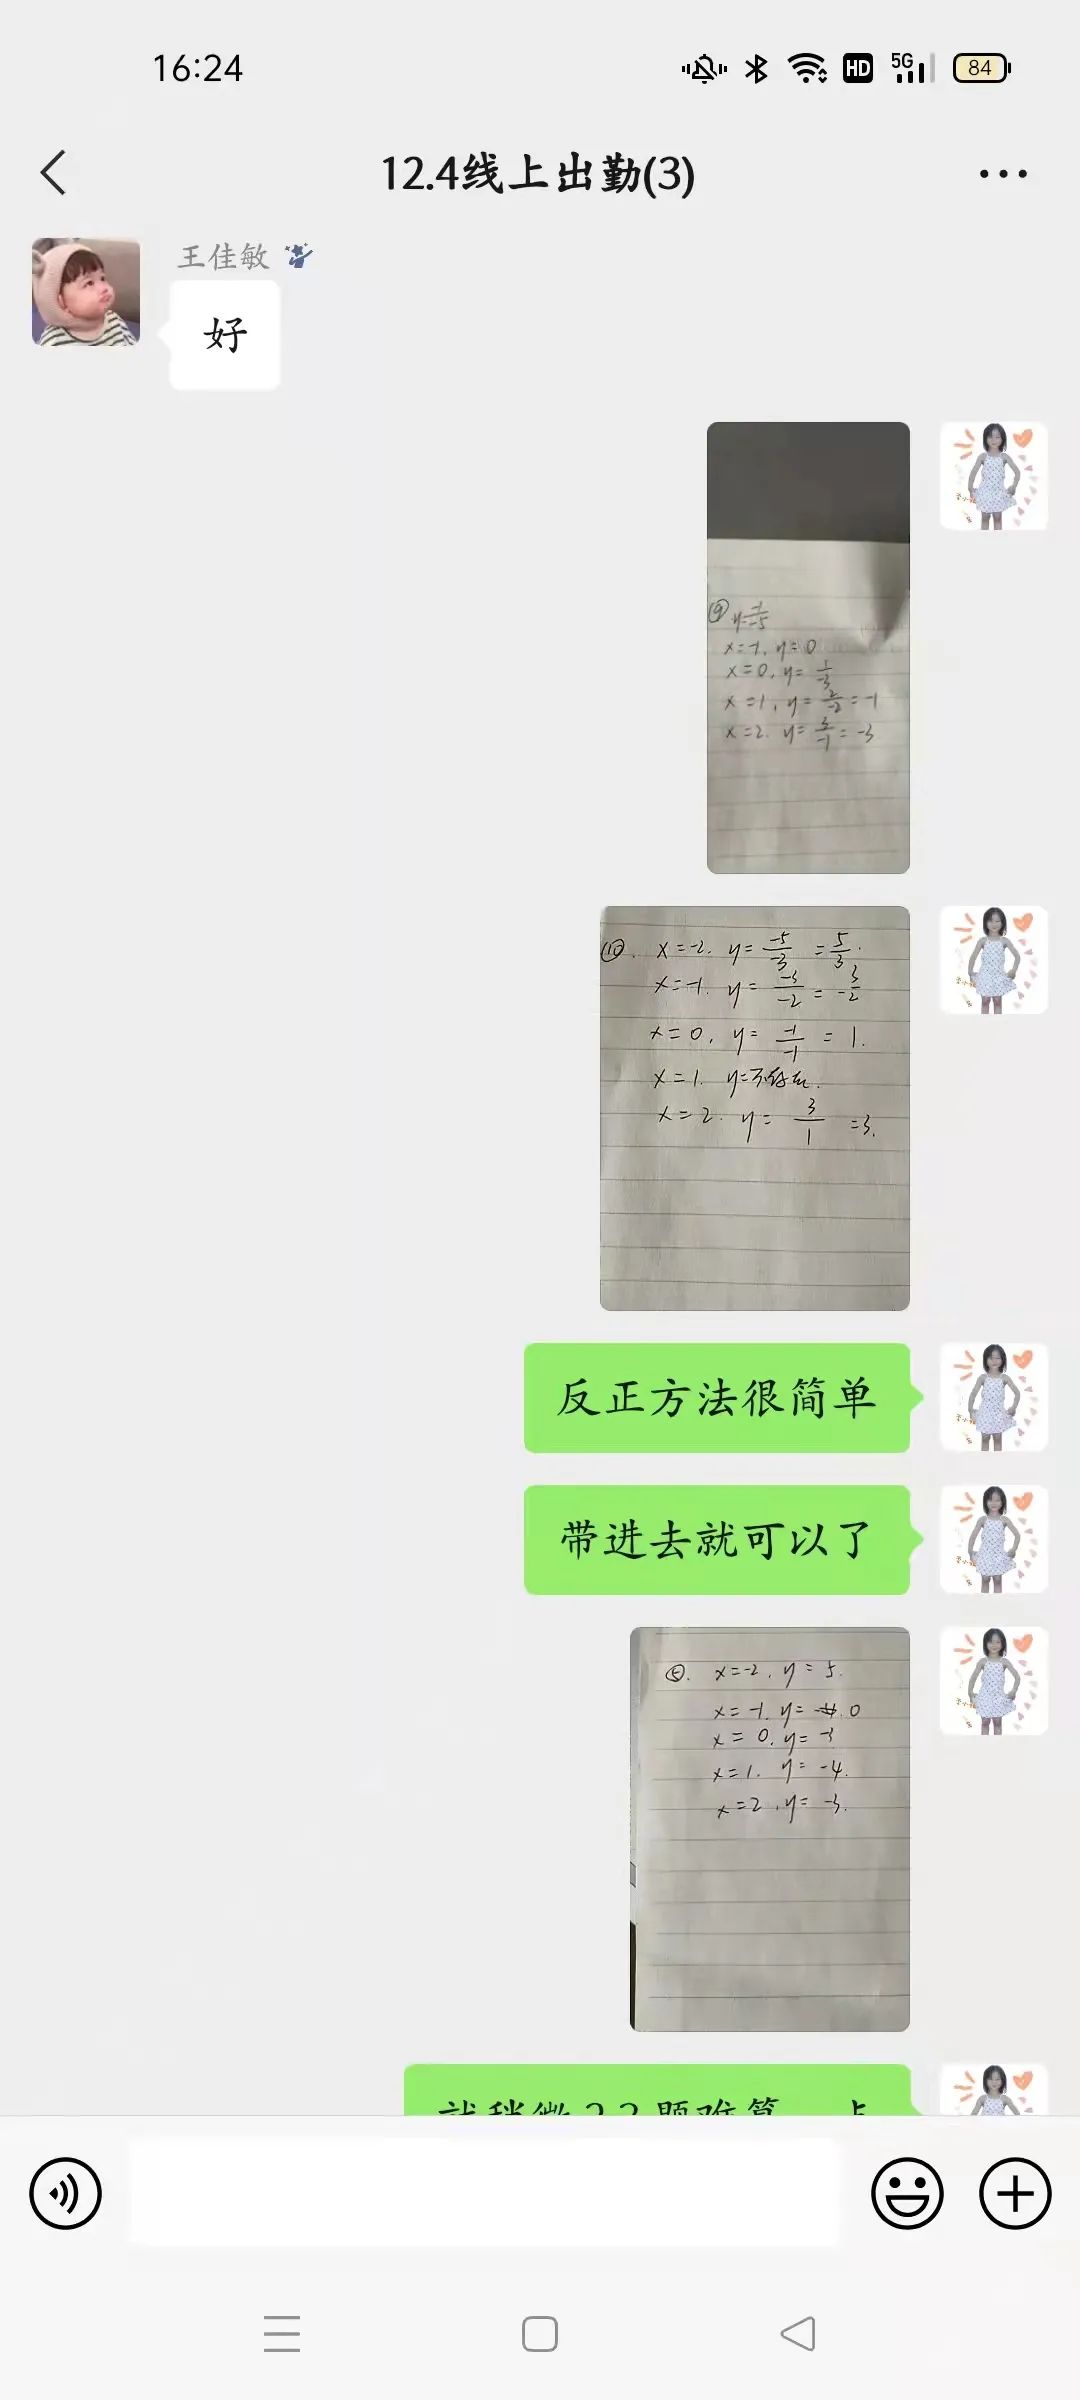 16:24
HD 5G 84
12.4线上出勤(3)
王佳敏
好
⑨ y=-1/-5
x=-1, y=0
x=0, y=1/-3
x=1, y=2/-2=-1
x=2. y=3/-1=-3
⑩. x=-2. y=-5/-3=5/3.
x=-1. y=-3/-2=-3/2
x=0, y=-1/-1=1.
x=1. y=不存在.
x=2. y=3/1=3.
反正方法很简单
带进去就可以了
⑤. x=-2, y=5.
x=-1. y= 0
x=0. y=-3
x=1. y=-4.
x=2, y=-3.